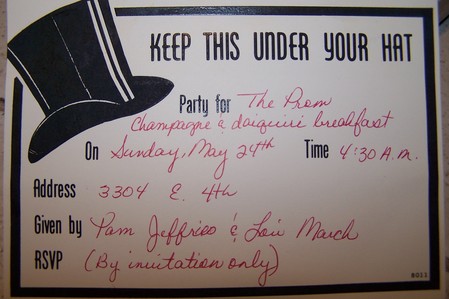 KEEP THIS UNDER YOUR HAT
Party for The Prom
Champagne & daiquiri breakfast
On Sunday, May 24th Time 4:30 A.m.
Address 3304 E. 4th
Given by Pam Jeffries & Lori March
RSVP (By invitation only)
8011